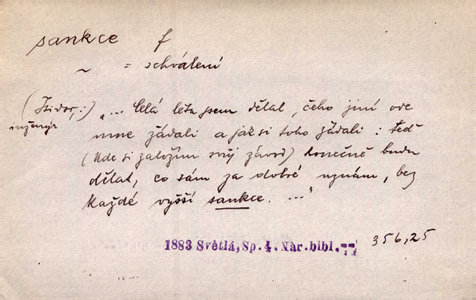 sankce f
~ = schválení
(Izidor:) „... Celá léta jsem dělal, čeho jiní ode
inženýr mne žádali a jak si toho žádali: teď
(kde si založím svůj závod) konečně budu
dělat, co sám za dobré uznám, bez
každé vyšší sankce. ..."
1883 Světlá, Sp. 4. Nár. bibl. 77 356,25